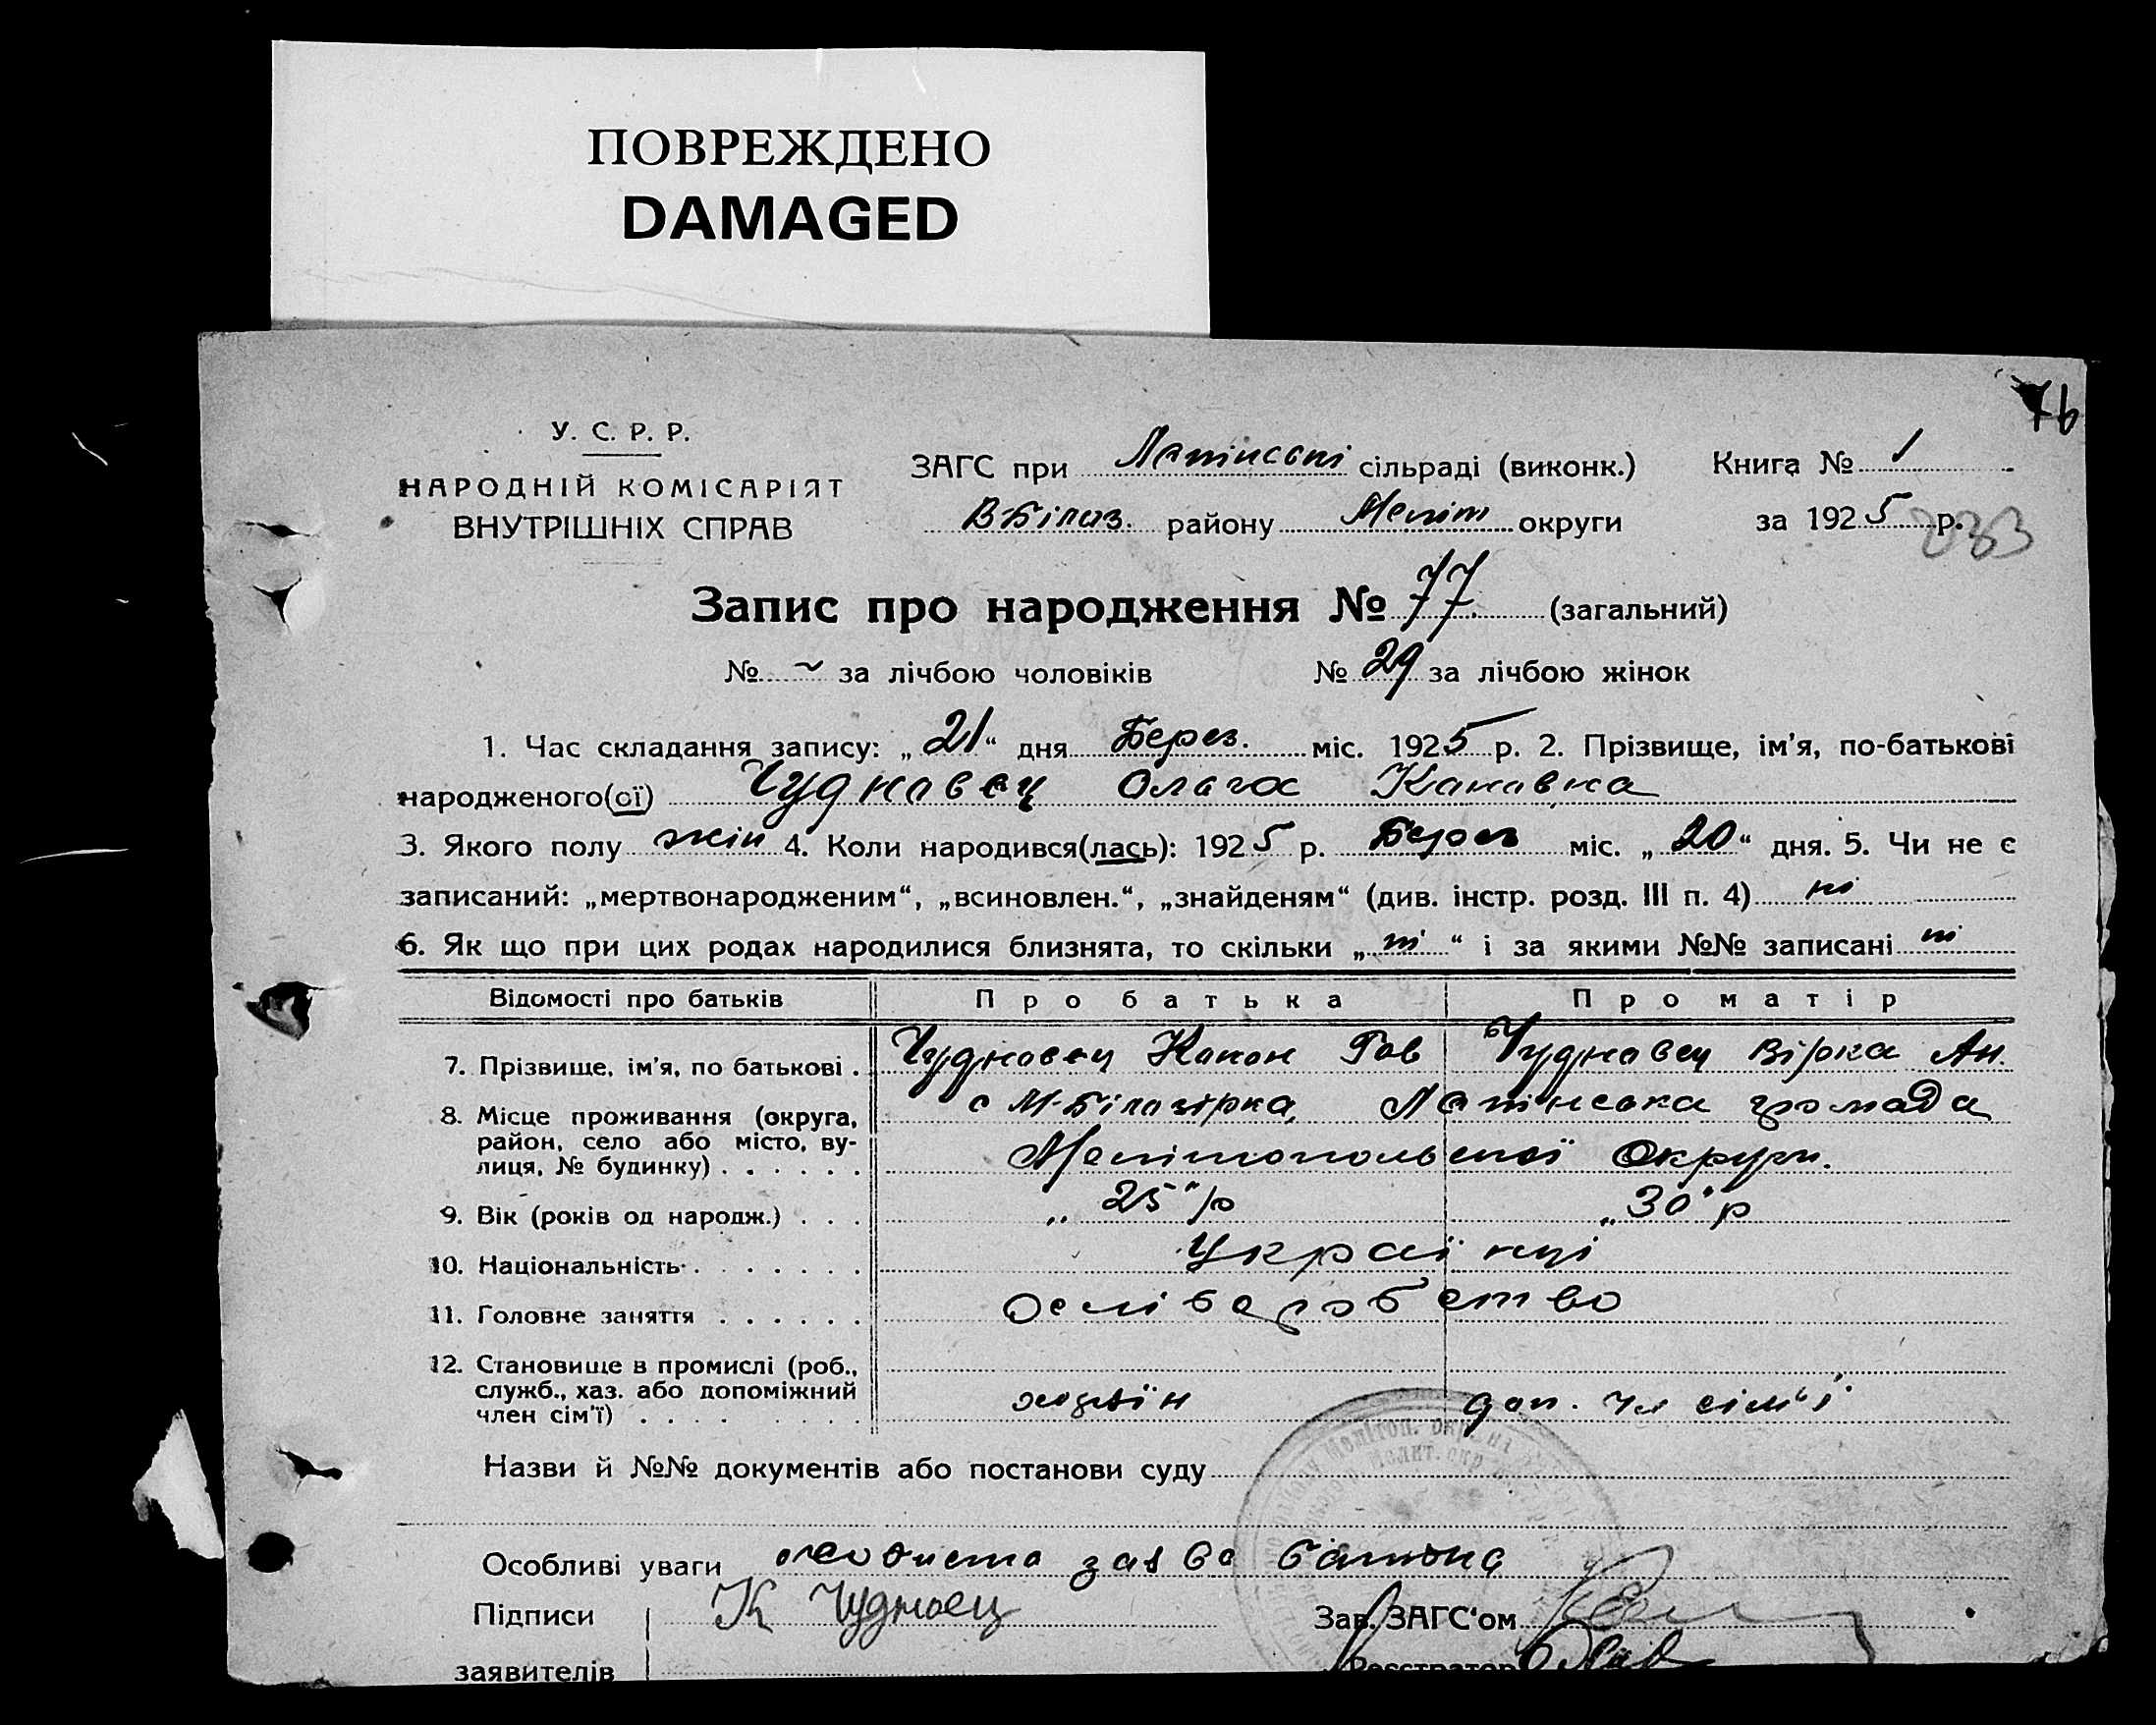 ПОВРЕЖДЕНО
DAMAGED
76
У. С. Р. Р.
НАРОДНІЙ КОМІСАРІЯТ
ВНУТРІШНІХ СПРАВ
ЗАГС при Латінські сільраді (виконк.) Книга № 1
В Білоз. району Меліт округи за 1925 р.
233
Запис про народження № 77 (загальний)
№ ~ за лічбою чоловіків № 29 за лічбою жінок
1. Час складання запису: „21“ дня Берез. міс. 1925 р. 2. Прізвище, ім'я, по-батькові
народженого(ої) Чудновец Ольга Кановна
3. Якого полу жін 4. Коли народився(лась): 1925 р. Берез міс. „20“ дня. 5. Чи не є
записаний: „мертвонародженим“, „всиновлен.“, „знайденям“ (див. інстр. розд. III п. 4) ні
6. Як що при цих родах народилися близнята, то скільки „ні“ і за якими №№ записані ні
Відомості про батьків Про батька Про матір
7. Прізвище, ім'я, по батькові . Чудновец Конон Гав Чудновец Вірка Ан.
8. Місце проживання (округа, район, село або місто, вулиця, № будинку) . . . . . . с М-Білозірка, Латінська громада
Мелітопольської Округи.
9. Вік (років од народж.) . . . „25“ р „30“ р
10. Національність . . . . . . . Українці
11. Головне заняття . . . . . .
12. Становище в промислі (роб.,
служб., хаз. або допоміжний
член сім'ї) . . . . . . . . хозяїн доп. чл сім'ї
Назви й №№ документів або постанови суду
Особливі уваги особиста заява батька
Підписи К Чудноец Зав. ЗАГС'ом
заявителів Реєстратор